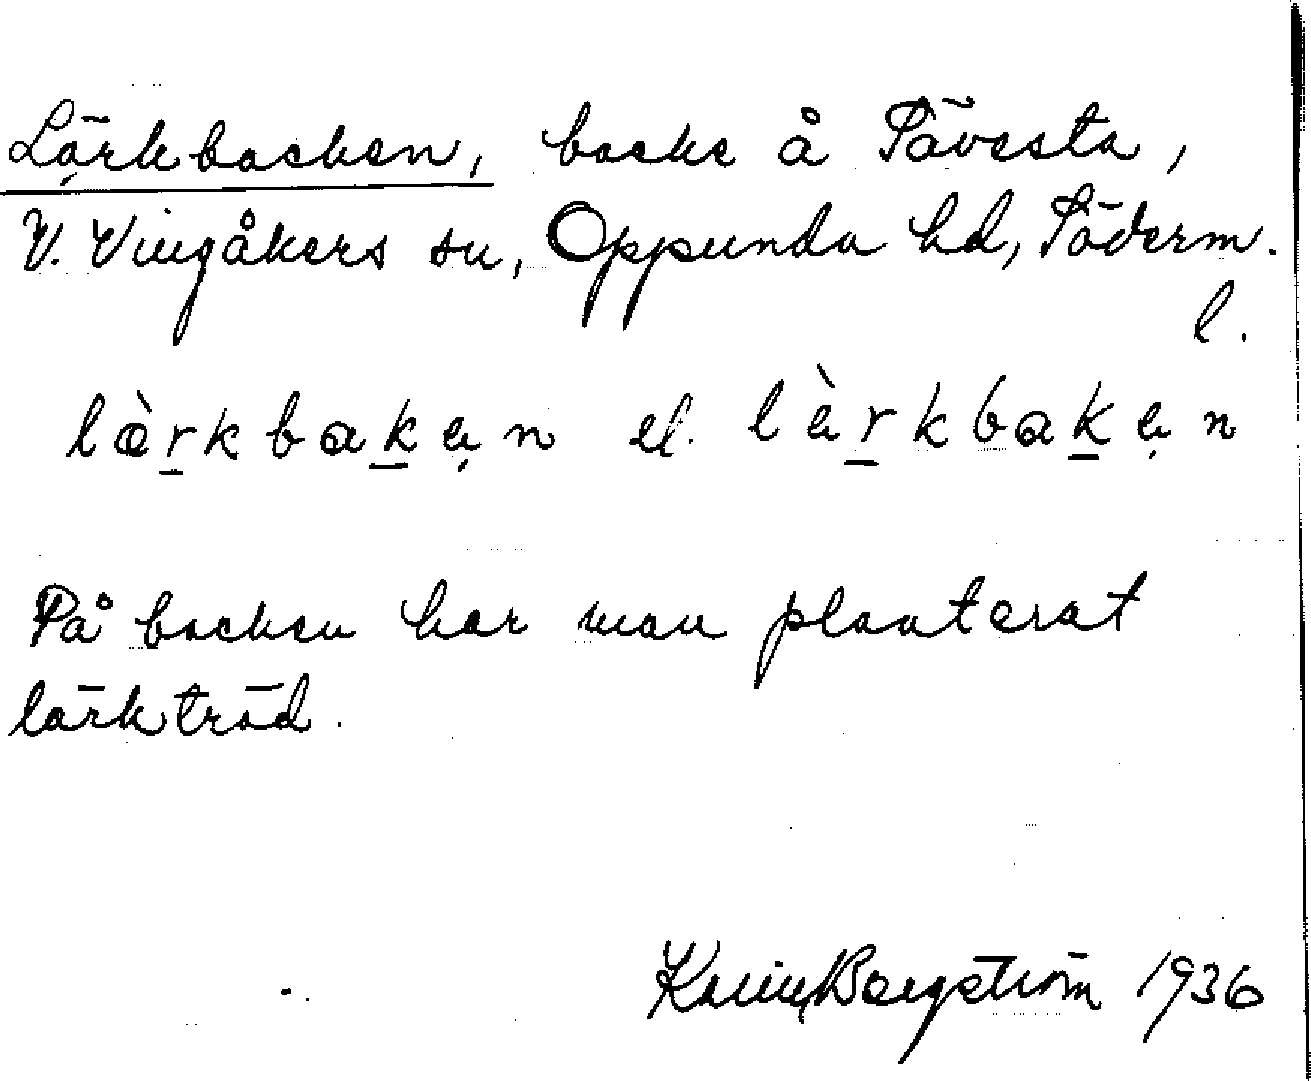 Lärkbacken, backe å Sävesta,
V. Vingåkers sn, Oppunda hd, Söderm.
l.
lærkbakən el. lèrkbakən
På backen har man planterat
lärkträd.
Karin Bergström 1936